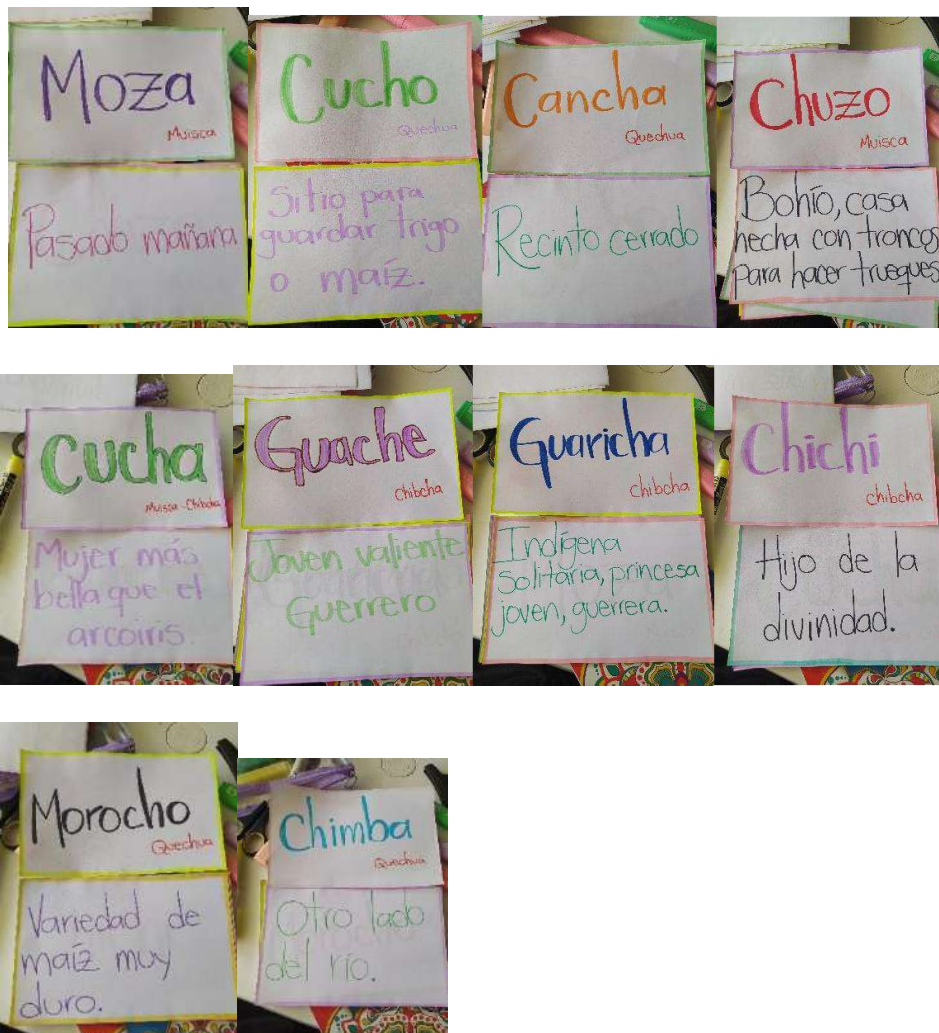 Moza
Muisca
Pasado mañana
Cucho
Quechua
Sitio para
guardar trigo
o maíz.
Cancha
Quechua
Recinto cerrado
Chuzo
Muisca
Bohío, casa
hecha con troncos
para hacer trueques
Cucha
Muisca-Chibcha
Mujer más
bella que el
arcoiris.
Guache
Chibcha
Joven valiente
Guerrero
Guaricha
Chibcha
Indígena
solitaria, princesa
joven, guerrera.
Chichi
Chibcha
Hijo de la
divinidad.
Morocho
Quechua
Variedad de
maíz muy
duro.
Chimba
Quechua
Otro lado
del río.